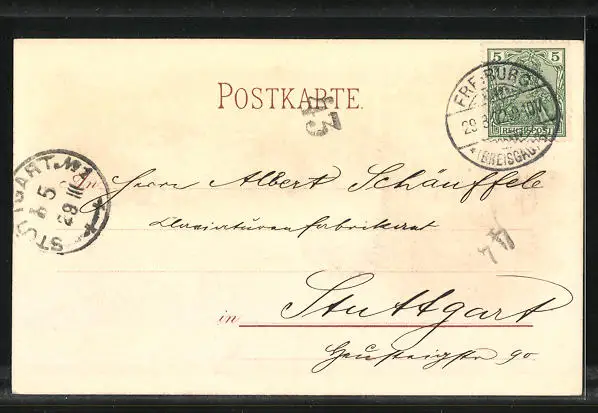 5 5
REICHSPOST
POSTKARTE.
FREIBURG
29.3.
* (BREISGAU)
STUTTGART.
5
29 III
An Herrn Albert Schäuffele
Klaviaturenfabrikant
in Stuttgart
Heusteigstr 90.